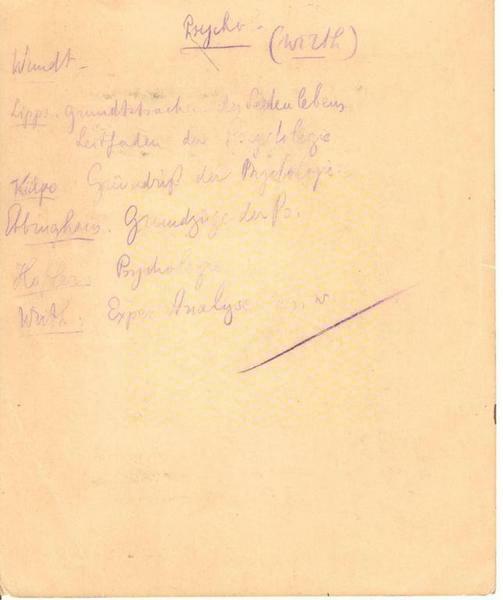 Psycho. (Wirth)
Wundt.
Lipps. Grundtatsachen des Seelenlebens
Leitfaden der Psychologie
Külpe Grundriß der Psychologie
Ebbinghaus. Grundzüge der Ps.
Höfler Psychologie
Wirth. Exper. Analyse